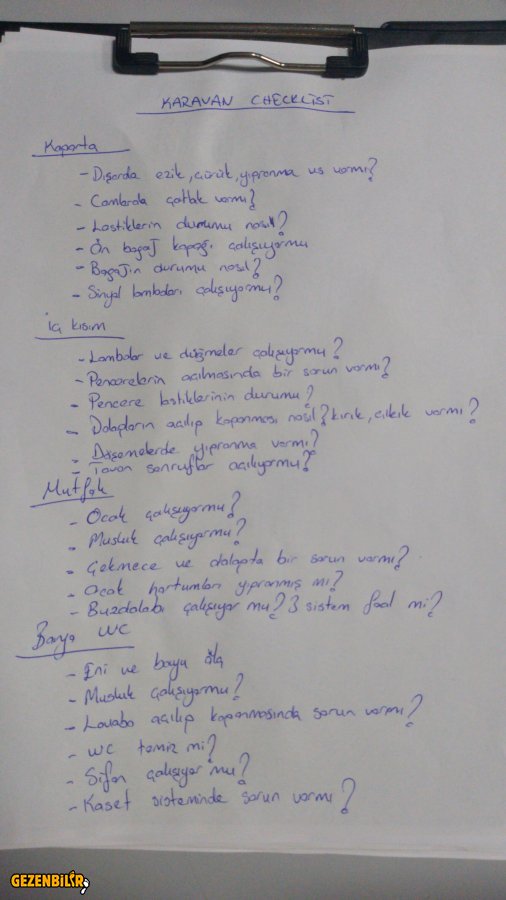 KARAVAN CHECKLİST
Kaporta
- Dışarda ezik, çürük, yıpranma vs varmı?
- Camlarda çatlak varmı?
- Lastiklerin durumu nasıl?
- Ön bagaj kapağı çalışıyormu
- Bagajın durumu nasıl?
- Sinyal lambaları çalışıyormu?
İç kısım
- Lambalar ve düğmeler çalışıyormu?
- Pencerelerin açılmasında bir sorun varmı?
- Pencere lastiklerinin durumu?
- Dolapların açılıp kapanması nasıl? kırık, çıkık varmı?
- Döşemelerde yıpranma varmı?
- Tavan sanruflar açılıyormu?
Mutfak
- Ocak çalışıyormu?
- Musluk çalışıyormu?
- Çekmece ve dolapta bir sorun varmı?
- Ocak hortumları yıpranmış mi?
- Buzdolabı çalışıyor mu? 3 sistem faal mi?
Banyo WC
- Eni ve boyu ölç
- Musluk çalışıyormu?
- Lavabo açılıp kapanmasında sorun varmı?
- WC temiz mi?
- Sifon çalışıyor mu?
- Kaset sisteminde sorun varmı?
GEZENBİLİR